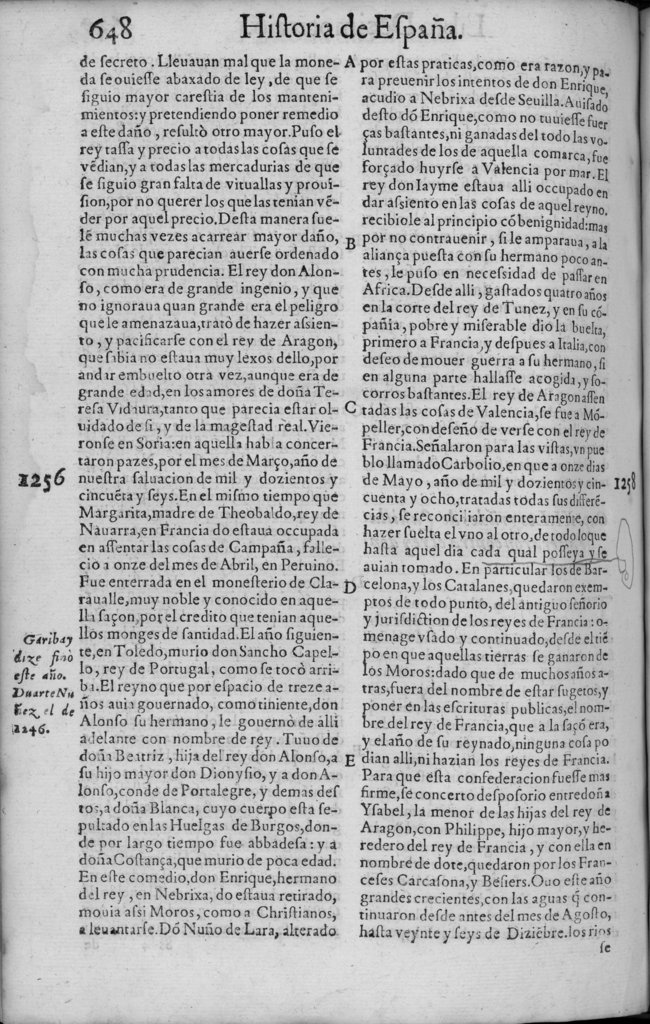 648 Historia de España.
de secreto. Lleuauan mal que la mone-
da se ouiesse abaxado de ley, de que se
siguio mayor carestia de los manteni-
mientos: y pretendiendo poner remedio
a este daño, resultò otro mayor. Puso el
rey tassa y precio a todas las cosas que se
vẽdian, y a todas las mercadurias de que
se siguio gran falta de vituallas y proui-
sion, por no querer los que las tenian vẽ-
der por aquel precio. Desta manera sue-
lẽ muchas vezes acarrear mayor daño,
las cosas que parecian auerse ordenado
con mucha prudencia. El rey don Alon-
so, como era de grande ingenio, y que
no ignoraua quan grande era el peligro
que le amenazaua, tratò de hazer assien-
to, y pacificarse con el rey de Aragon,
que sibia no estaua muy lexos dello, por
andar embuelto otra vez, aunque era de
grande edad, en los amores de doña Te-
resa Vidaura, tanto que parecia estar ol-
uidado de si, y de la magestad real. Vie-
ronse en Soria: en aquella habla concer-
taron pazes, por el mes de Março, año de
1256 nuestra saluacion de mil y dozientos y
cincuẽta y seys. En el mismo tiempo que
Margarita, madre de Theobaldo, rey de
Nauarra, en Francia do estaua occupada
en assentar las cosas de Campaña, falle-
cio a onze del mes de Abril, en Peruino.
Fue enterrada en el monesterio de Cla-
raualle, muy noble y conocido en aque-
lla saçon, por el credito que tenian aque-
llos monges de santidad. El año siguien-
te, en Toledo, murio don Sancho Capel-
lo, rey de Portugal, como se tocò arri-
ba. El reyno que por espacio de treze a-
ños auia gouernado, como tiniente, don
Alonso su hermano, le gouernò de alli
adelante con nombre de rey. Tuuo de
doña Beatriz, hija del rey don Alonso, a
su hijo mayor don Dionysio, y a don A-
lonso, conde de Portalegre, y demas des
tos, a doña Blanca, cuyo cuerpo esta se-
pultado en las Huelgas de Burgos, don-
de por largo tiempo fue abbadesa: y a
doña Costança, que murio de poca edad.
En este comedio, don Enrique, hermano
del rey, en Nebrixa, do estaua retirado,
mouia assi Moros, como a Christianos,
a leuantarse. Dõ Nuño de Lara, alterado
Garibay
dize finò
este año.
Duarte Nu
ñez, el de
1246.
A
B
C
D
E
por estas praticas, como era razon, y pa-
ra preuenir los intentos de don Enrique,
acudio a Nebrixa desde Seuilla. Auisado
desto dõ Enrique, como no tuuiesse fuer
ças bastantes, ni ganadas del todo las vo-
luntades de los de aquella comarca, fue
forçado huyrse a Valencia por mar. El
rey don Iayme estaua alli occupado en
dar assiento en las cosas de aquel reyno,
recibiole al principio cõ benignidad: mas
por no contrauenir, si le amparaua, a la
aliança puesta con su hermano poco an-
tes, le puso en necessidad de passar en
Africa. Desde alli, gastados quatro años
en la corte del rey de Tunez, y en su cõ-
pañia, pobre y miserable dio la buelta,
primero a Francia, y despues a Italia, con
deseo de mouer guerra a su hermano, si
en alguna parte hallasse acogida, y so-
corros bastantes. El rey de Aragon assen
tadas las cosas de Valencia, se fue a Mõ-
peller, con deseño de verse con el rey de
Francia. Señalaron para las vistas, vn pue
blo llamado Carbolio, en que a onze dias
de Mayo, año de mil y dozientos y cin- 1258
cuenta y ocho, tratadas todas sus differẽ-
cias, se reconciliaron enteramente, con
hazer suelta el vno al otro, de todo lo que
hasta aquel dia cada qual posseya y se
auian tomado. En particular los de Bar-
celona, y los Catalanes, quedaron exem-
ptos de todo punto, del antiguo señorio
y jurisdiction de los reyes de Francia: o-
menage vsado y continuado, desde el tiẽ
po en que aquellas tierras se ganaron de
los Moros: dado que de muchos años a-
tras, fuera del nombre de estar sugetos, y
poner en las escrituras publicas, el nom-
bre del rey de Francia, que a la saçõ era,
y el año de su reynado, ninguna cosa po
dian alli, ni hazian los reyes de Francia.
Para que esta confederacion fuesse mas
firme, se concerto desposorio entre doña
Ysabel, la menor de las hijas del rey de
Aragon, con Philippe, hijo mayor, y he-
redero del rey de Francia, y con ella en
nombre de dote, quedaron por los Fran-
ceses Carcasona, y Besiers. Ouo este año
grandes crecientes, con las aguas q̃ con-
tinuaron desde antes del mes de Agosto,
hasta veynte y seys de Diziẽbre. los rios
se